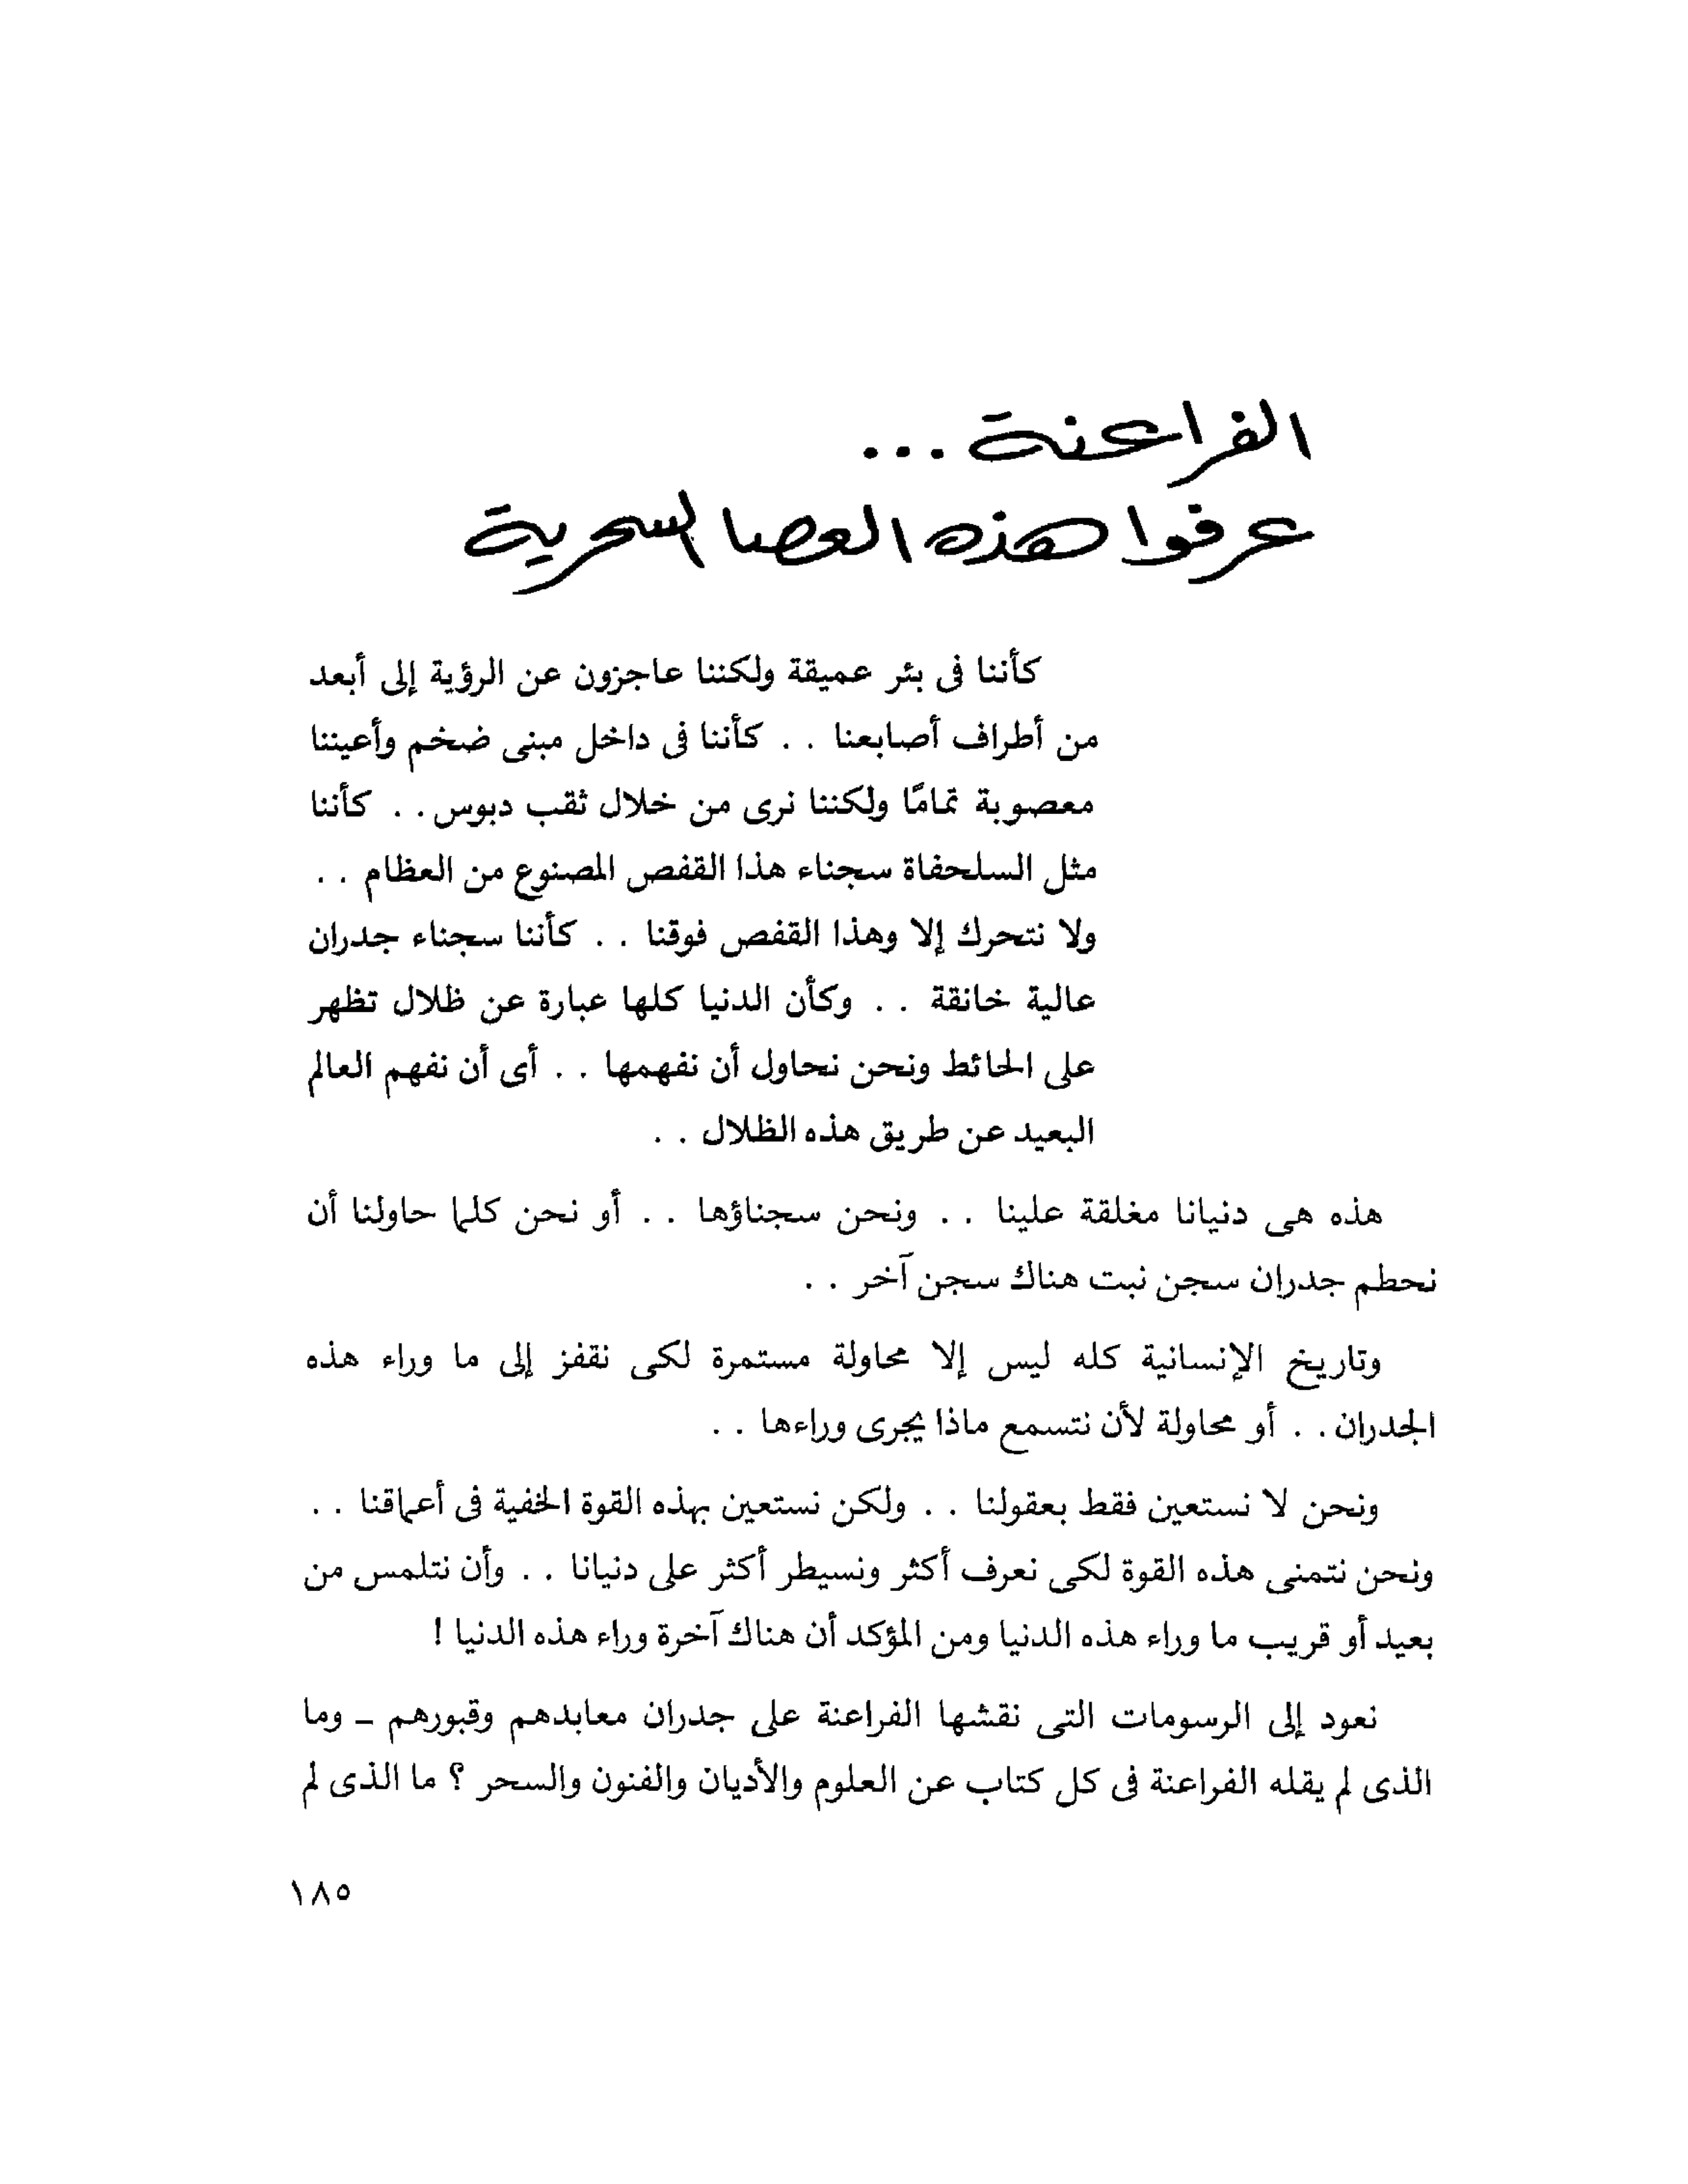 الفراعنة ...
عرفوا هذه العصا السحرية
كأننا فى بئر عميقة ولكننا عاجزون عن الرؤية إلى أبعد
من أطراف أصابعنا . . كأننا فى داخل مبنى ضخم وأعيننا
معصوبة تمامًا ولكننا نرى من خلال ثقب دبوس . . كأننا
مثل السلحفاة سجناء هذا القفص المصنوع من العظام . .
ولا نتحرك إلا وهذا القفص فوقنا . . كأننا سجناء جدران
عالية خانقة . . وكأن الدنيا كلها عبارة عن ظلال تظهر
على الحائط ونحن نحاول أن نفهمها . . أى أن نفهم العالم
البعيد عن طريق هذه الظلال . .
هذه هى دنيانا مغلقة علينا . . ونحن سجناؤها . . أو نحن كلما حاولنا أن
نحطم جدران سجن نبت هناك سجن آخر . .
وتاريخ الإنسانية كله ليس إلا محاولة مستمرة لكى نقفز إلى ما وراء هذه
الجدران . . أو محاولة لأن نتسمع ماذا يجرى وراءها . .
ونحن لا نستعين فقط بعقولنا . . ولكن نستعين بهذه القوة الخفية فى أعماقنا . .
ونحن نتمنى هذه القوة لكى نعرف أكثر ونسيطر أكثر على دنيانا . . وأن نتلمس من
بعيد أو قريب ما وراء هذه الدنيا ومن المؤكد أن هناك آخرة وراء هذه الدنيا !
نعود إلى الرسومات التى نقشها الفراعنة على جدران معابدهم وقبورهم ــ وما
الذى لم يقله الفراعنة فى كل كتاب عن العلوم والأديان والفنون والسحر ؟ ما الذى لم
١٨٥